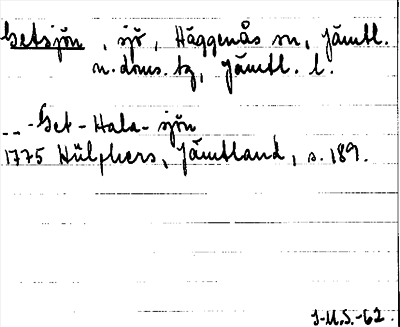 Getsjön, sjö, Häggenås sn, Jämtl.
n. doms. tg, Jämtl. l.
-- - Get - Hala - sjön
1775 Hülphers, Jämtland, s. 189.
J-M.S.-62.